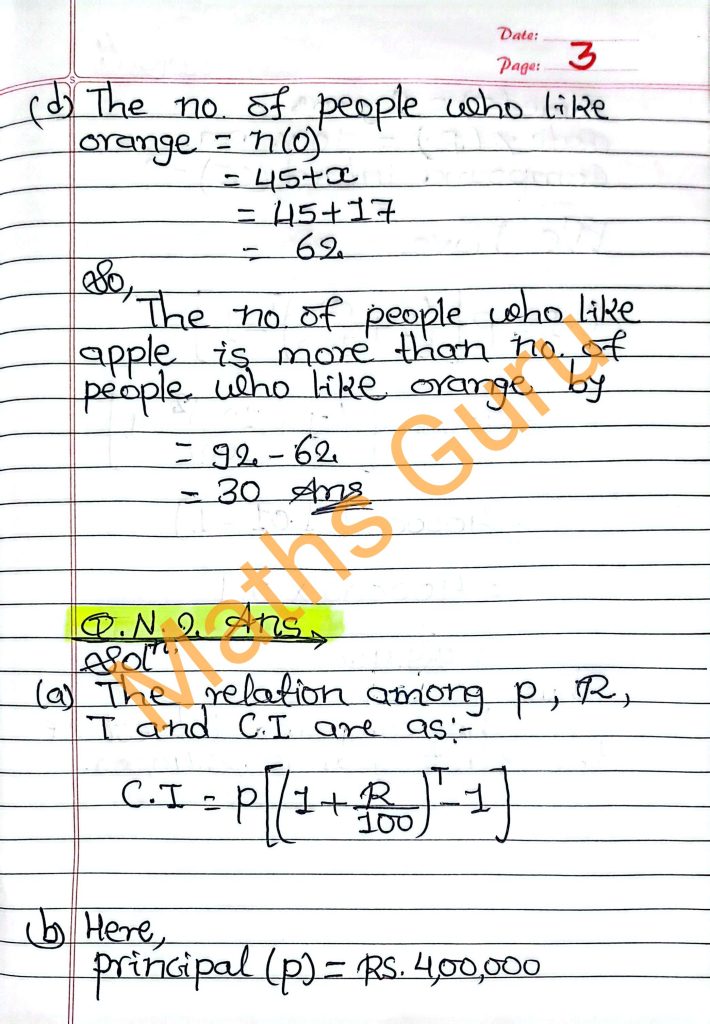 Date:
Page: 3
(d) The no. of people who like
orange = n(O)
= 45+x
= 45+17
= 62
So,
The no. of people who like
apple is more than no. of
people who like orange by
= 92 - 62
= 30 Ans
Maths Guru
Q.N.2. Ans.
Solⁿ.
(a) The relation among p, R,
T and C.I are as:-
C.I = p[(1 + R/100)^T - 1]
(b) Here,
principal (p) = RS. 4,00,000